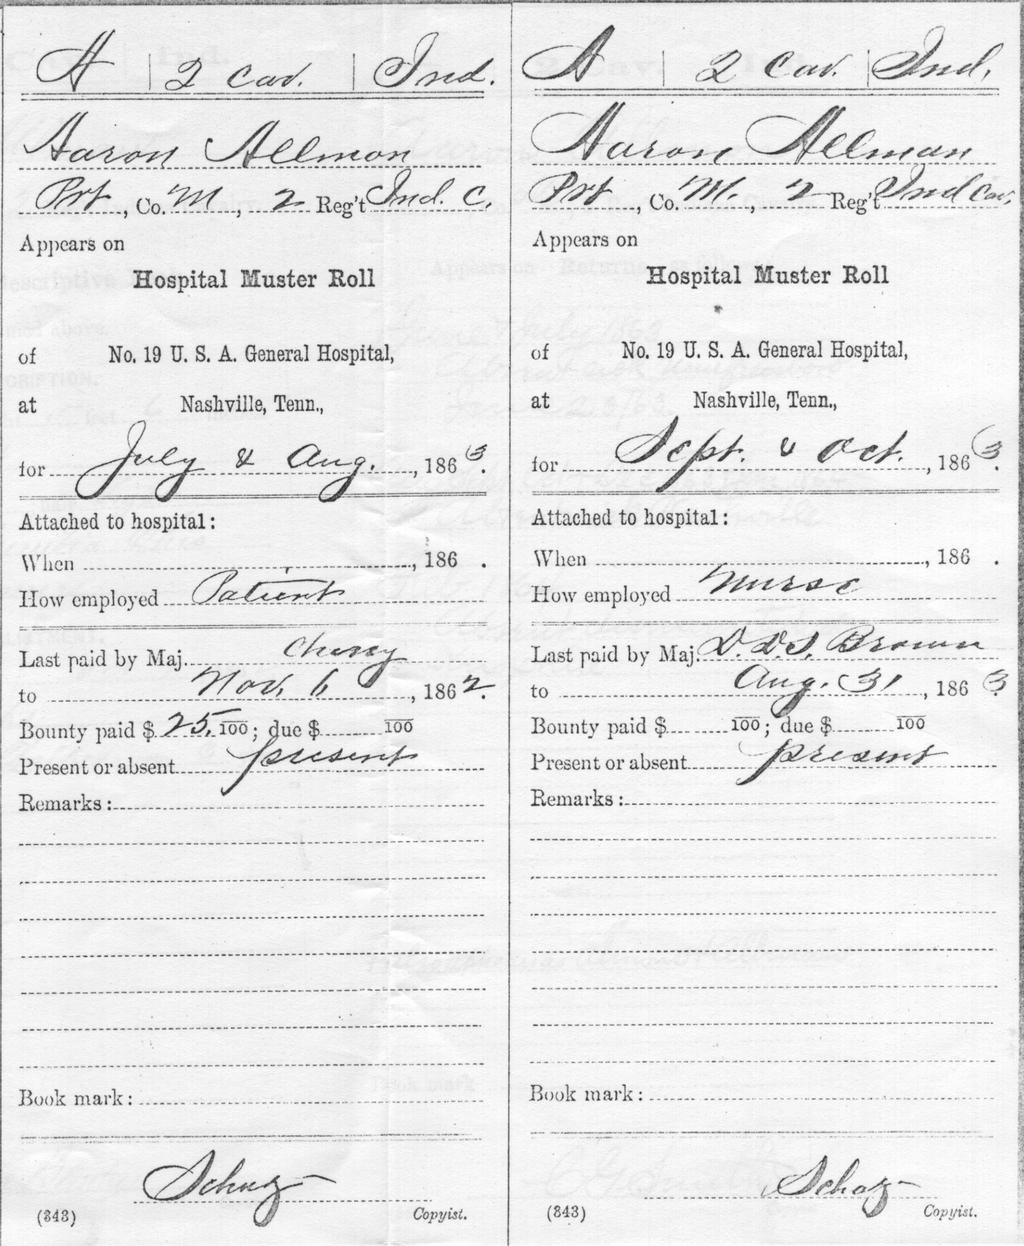 A | 2 Cav. | Ind.
Aaron Allmon
Pvt, Co. M, 2 Reg't Ind. C.
Appears on
Hospital Muster Roll
of No. 19 U. S. A. General Hospital,
at Nashville, Tenn.,
for July & Aug., 1863.
Attached to hospital:
When , 186 .
How employed Patient
Last paid by Maj. Cherry
to Nov. 6, 1862.
Bounty paid $ 25. 100; due $ 100
Present or absent present
Remarks:
Book mark:
(343) Copyist.
A | 2 Cav. | Ind.
Aaron Allman
Pvt, Co. M., 2 Reg't Ind Cav.
Appears on
Hospital Muster Roll
of No. 19 U. S. A. General Hospital,
at Nashville, Tenn.,
for Sept. & Oct., 1863.
Attached to hospital:
When , 186 .
How employed Nurse
Last paid by Maj. D.D.S. Brown
to Aug. 31, 1863.
Bounty paid $ 100; due $ 100
Present or absent present
Remarks:
Book mark:
(343) Copyist.